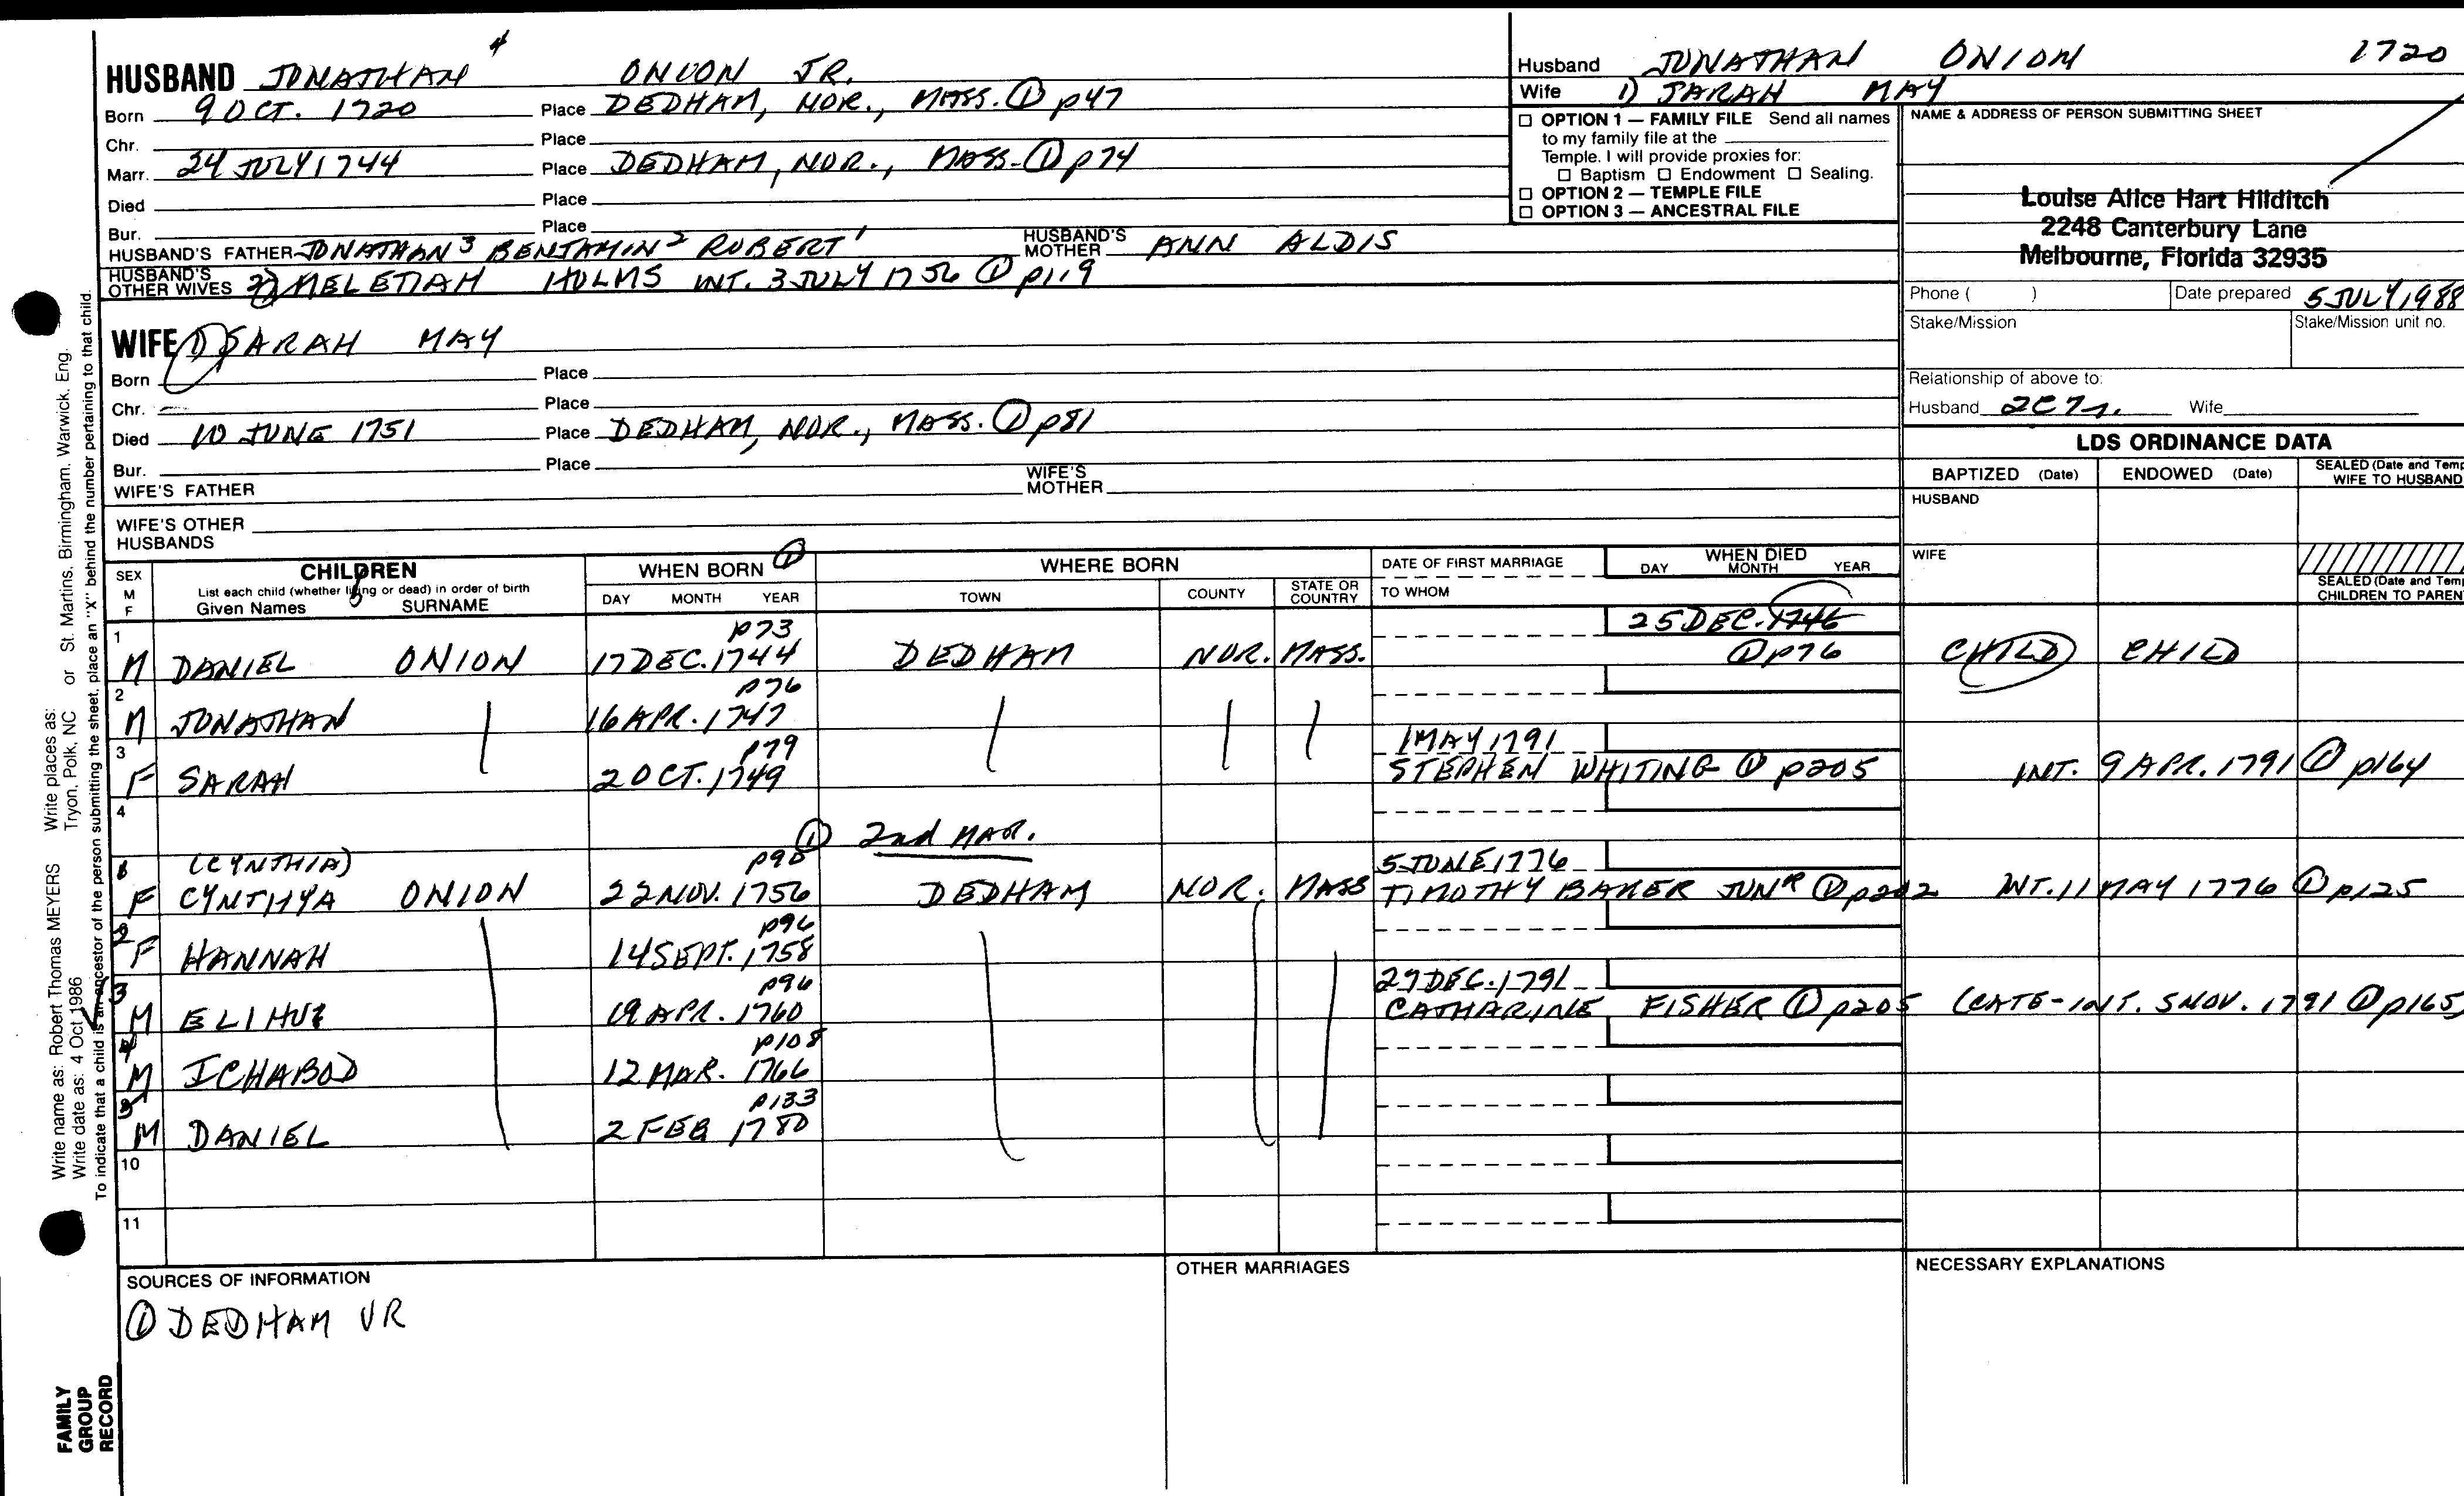 4
HUSBAND JONATHAN ONION JR.
Born 9 OCT. 1720 Place DEDHAM, NOR., MASS. ① p47
Chr. Place
Marr. 24 JULY 1744 Place DEDHAM, NOR., MASS. ① p74
Died Place
Bur. Place
HUSBAND'S FATHER JONATHAN 3 BENJAMIN 2 ROBERT 1 HUSBAND'S MOTHER ANN ALDIS
HUSBAND'S OTHER WIVES 2) MELETIAH HOLMS INT. 3 JULY 1756 ① p119
WIFE 1) SARAH MAY
Born Place
Chr. Place
Died 10 JUNE 1751 Place DEDHAM, NOR., MASS. ① p81
Bur. Place
WIFE'S FATHER WIFE'S MOTHER
WIFE'S OTHER HUSBANDS
Husband JONATHAN ONION 1720
Wife 1) SARAH MAY
☐ OPTION 1 — FAMILY FILE Send all names
to my family file at the
Temple. I will provide proxies for:
☐ Baptism ☐ Endowment ☐ Sealing.
☐ OPTION 2 — TEMPLE FILE
☐ OPTION 3 — ANCESTRAL FILE
NAME & ADDRESS OF PERSON SUBMITTING SHEET
Louise Alice Hart Hilditch
2248 Canterbury Lane
Melbourne, Florida 32935
Phone ( ) Date prepared 5 JULY 1988
Stake/Mission Stake/Mission unit no.
Relationship of above to:
Husband 2C7r. Wife
LDS ORDINANCE DATA
BAPTIZED (Date) ENDOWED (Date) SEALED (Date and Temp
WIFE TO HUSBAND
HUSBAND
WIFE
SEALED (Date and Temp
CHILDREN TO PAREN
SEX
M
F
CHILDREN
List each child (whether living or dead) in order of birth
Given Names SURNAME
WHEN BORN ①
DAY MONTH YEAR
WHERE BORN
TOWN COUNTY STATE OR COUNTRY
DATE OF FIRST MARRIAGE
TO WHOM
WHEN DIED
DAY MONTH YEAR
1 p73 25 DEC. 1746
M DANIEL ONION 17 DEC. 1744 DEDHAM NOR. MASS. ① p76 CHILD CHILD
2 p76
M JONATHAN 16 APR. 1747
3 p79 1 MAY 1791
F SARAH 2 OCT. 1749 STEPHEN WHITING ① p205 INT. 9 APR. 1791 ① p164
4
① 2nd MAR.
1 (CYNTHIA) p90 5 JUNE 1776
F CYNTHYA ONION 22 NOV. 1756 DEDHAM NOR. MASS TIMOTHY BAKER JUNR ① p202 INT. 11 MAY 1776 ① p125
2 p96
F HANNAH 14 SEPT. 1758
3 p96 29 DEC. 1791
M ELIHU 19 APR. 1760 CATHARINE FISHER ① p205 (CATE-INT. 5 NOV. 1791 ① p165)
4 p108
M ICHABOD 12 MAR. 1766
5 p133
M DANIEL 2 FEB 1780
10
11
SOURCES OF INFORMATION
① DEDHAM VR
OTHER MARRIAGES
NECESSARY EXPLANATIONS
Write name as: Robert Thomas MEYERS Write places as: St. Martins, Birmingham, Warwick, Eng.
Write date as: 4 Oct 1986 Tryon, Polk, NC or
To indicate that a child is an ancestor of the person submitting the sheet, place an "X" behind the number pertaining to that child.
FAMILY
GROUP
RECORD